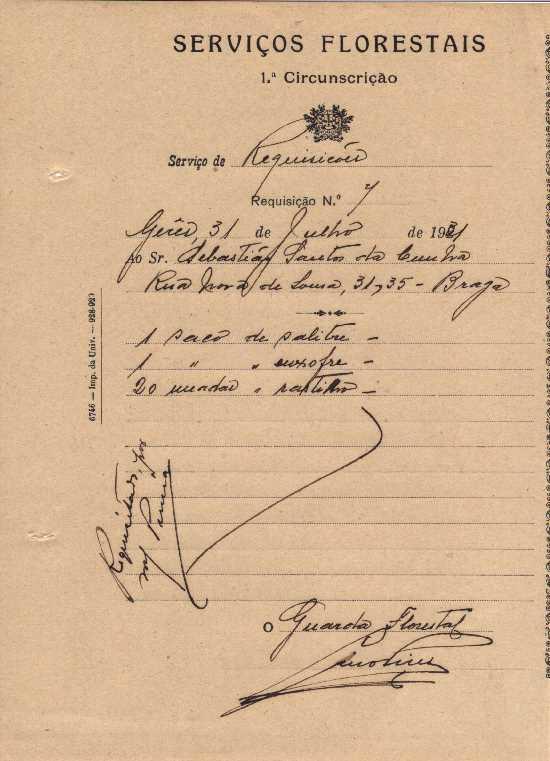 SERVIÇOS FLORESTAIS
1.ª Circunscrição
Serviço de Requisições
Requisição N.º 7
Gerês, 31 de Julho de 1931
Ao Sr. Sebastião Santos da Cunha
Rua Nova de Sousa, 31,35 - Braga
1 saco de salitre -
1 " " enxofre -
20 meadas " rastilho -
Requisitado por
O Guarda Florestal
6746 — Imp. da Univ. — 928-929